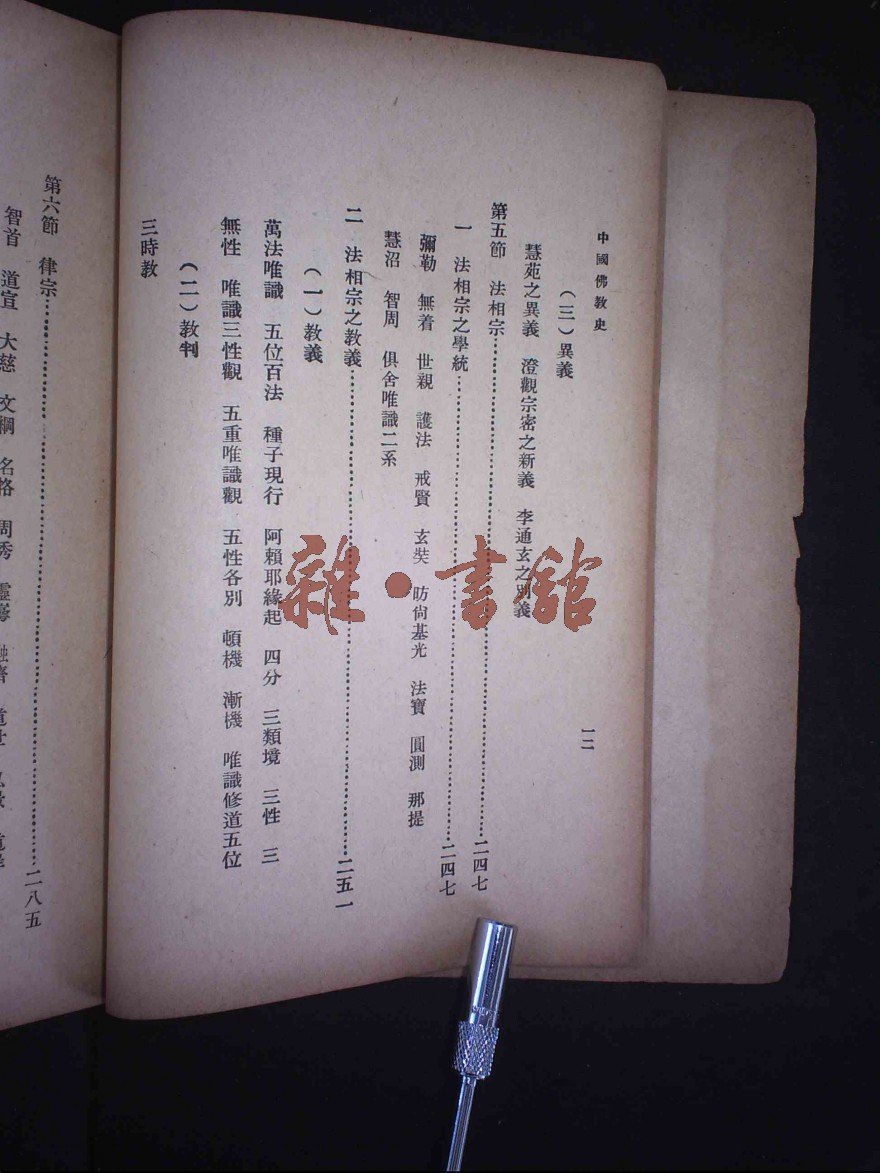 中國佛教史
一二
(三)異義
慧苑之異義 澄觀宗密之新義 李通玄之別義
第五節 法相宗……二四七
一 法相宗之學統……二四七
彌勒 無着 世親 護法 戒賢 玄奘 昉尙基光 法寶 圓測 那提
慧沼 智周 俱舍唯識二系
二 法相宗之教義……二五一
(一)教義
萬法唯識 五位百法 種子現行 阿賴耶緣起 四分 三類境 三性 三
無性 唯識三性觀 五重唯識觀 五性各別 頓機 漸機 唯識修道五位
(二)教判
三時教
第六節 律宗……二八五
智首 道宣 大慈 文綱 名恪 周秀 靈崿 融濟
雜·書館